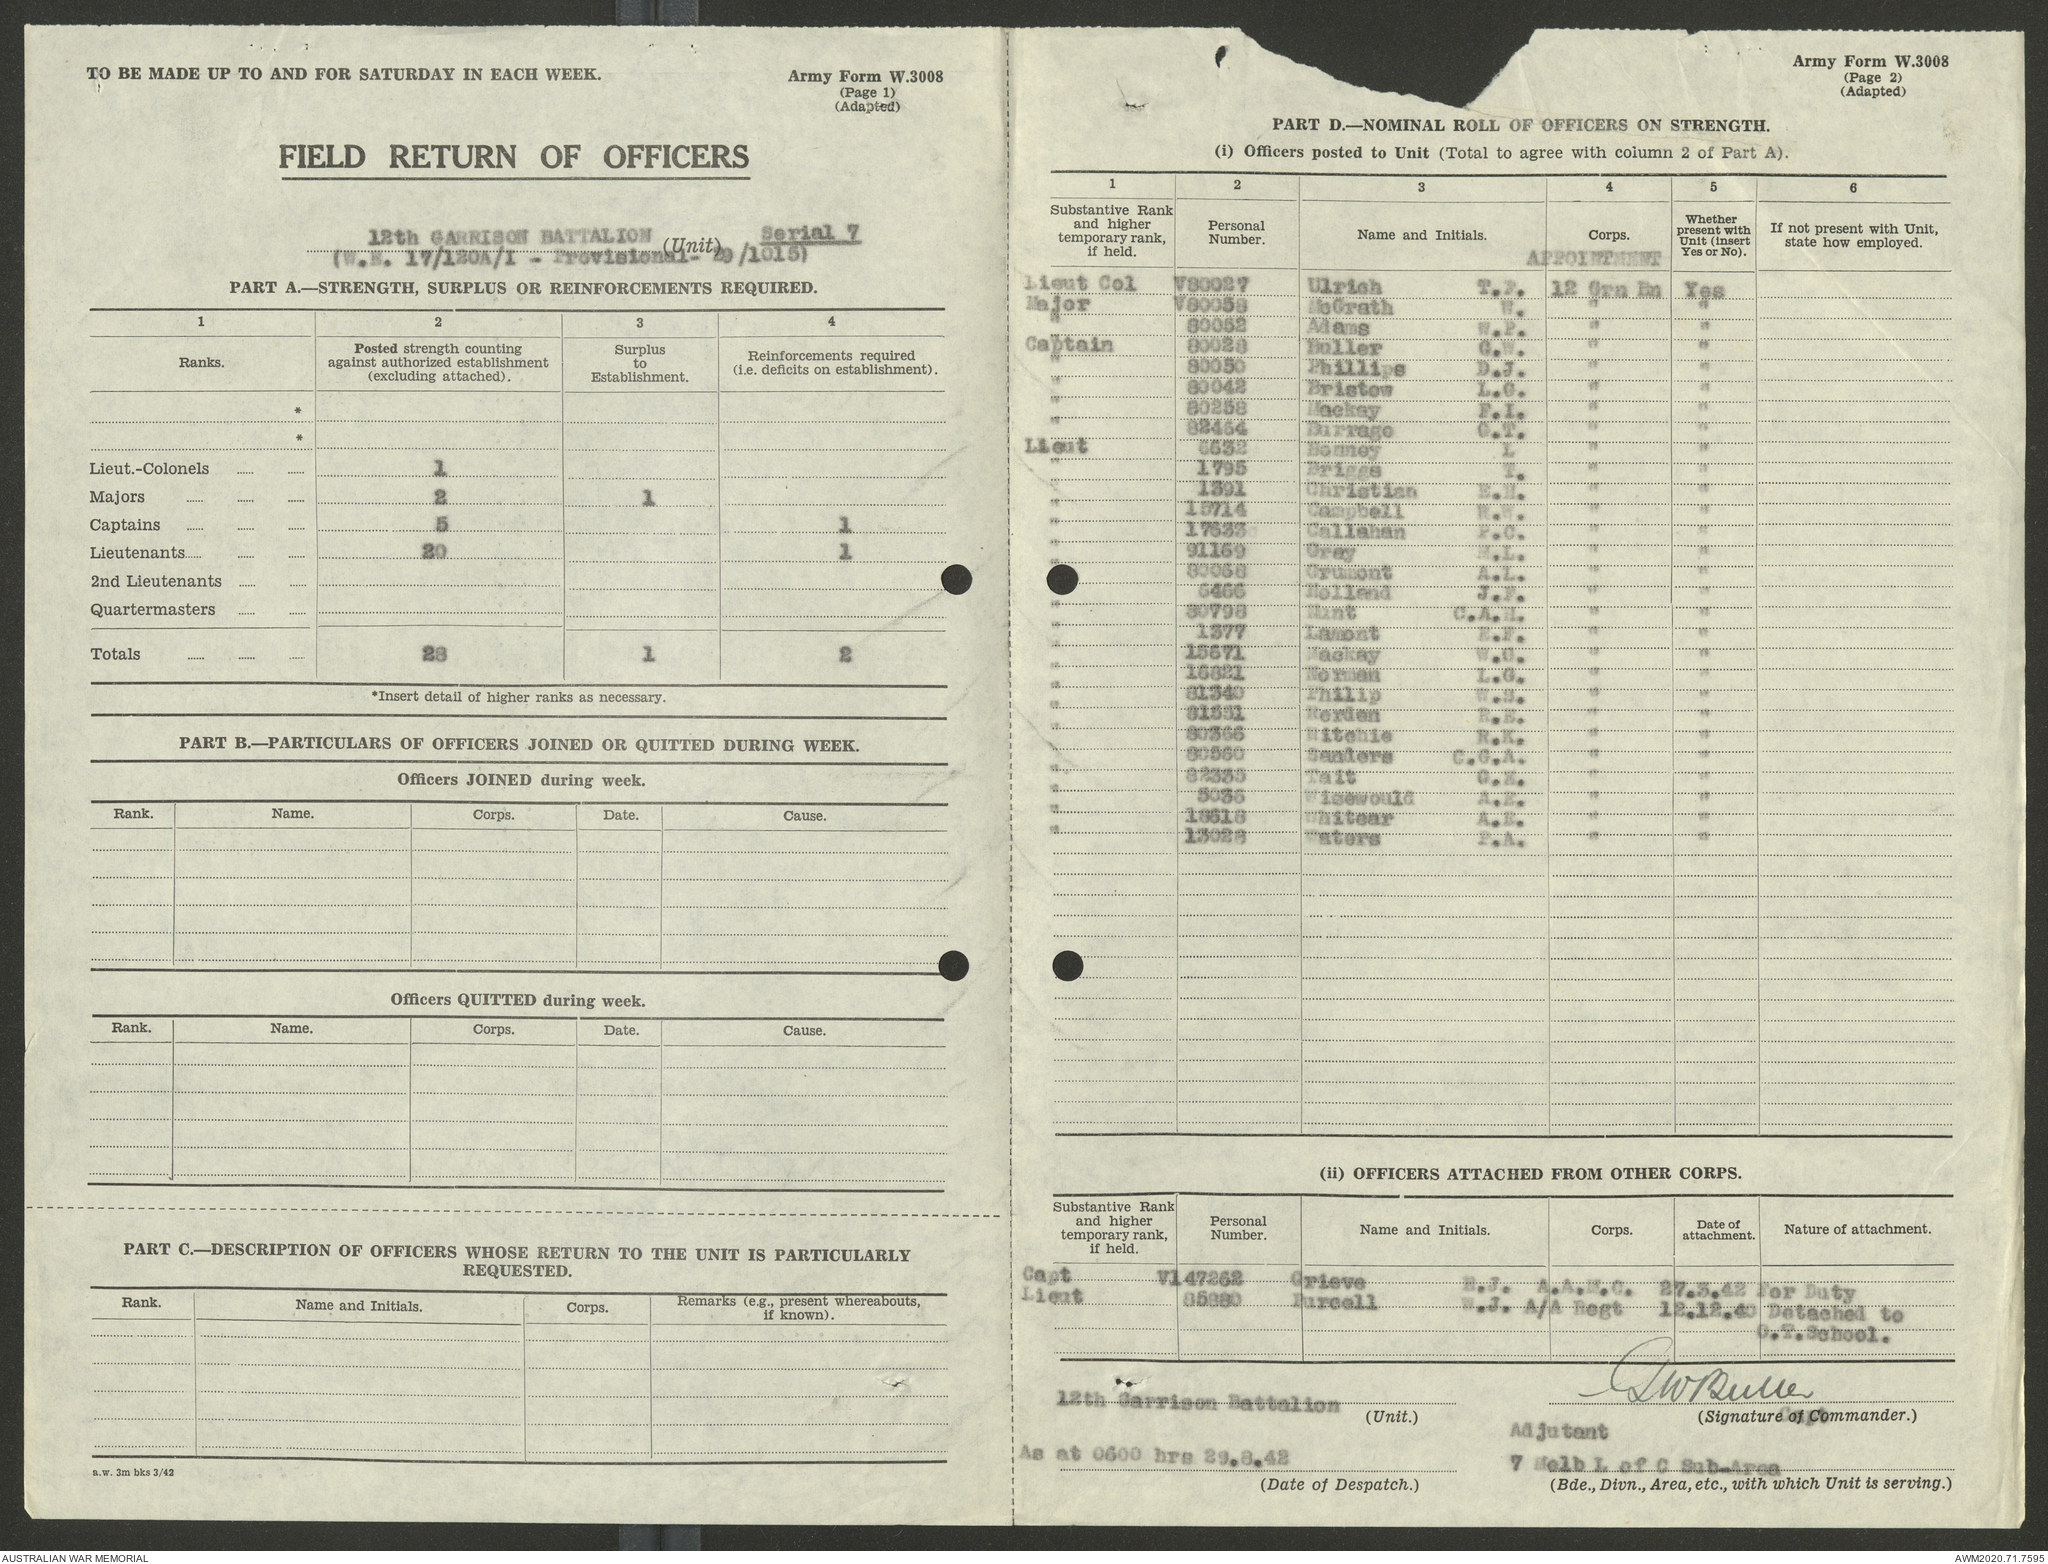 TO BE MADE UP TO AND FOR SATURDAY IN EACH WEEK.
Army Form W.3008
(Page 1)
(Adapted)
FIELD RETURN OF OFFICERS
12th GARRISON BATTALION (Unit) Serial 7
(W.E. 17/120A/1 - Provisional- 29/1015)
PART A.—STRENGTH, SURPLUS OR REINFORCEMENTS REQUIRED.
1 2 3 4
Ranks. Posted strength counting against authorized establishment (excluding attached). Surplus to Establishment. Reinforcements required (i.e. deficits on establishment).
*
*
Lieut.-Colonels ...... ...... 1
Majors ...... ...... ...... 2 1
Captains ...... ...... 5 1
Lieutenants...... ...... ...... 20 1
2nd Lieutenants ...... ......
Quartermasters ...... ......
Totals ...... ...... ...... 28 1 2
*Insert detail of higher ranks as necessary.
PART B.—PARTICULARS OF OFFICERS JOINED OR QUITTED DURING WEEK.
Officers JOINED during week.
Rank. Name. Corps. Date. Cause.
Officers QUITTED during week.
Rank. Name. Corps. Date. Cause.
PART C.—DESCRIPTION OF OFFICERS WHOSE RETURN TO THE UNIT IS PARTICULARLY
REQUESTED.
Rank. Name and Initials. Corps. Remarks (e.g., present whereabouts, if known).
a.w. 3m bks 3/42
Army Form W.3008
(Page 2)
(Adapted)
PART D.—NOMINAL ROLL OF OFFICERS ON STRENGTH.
(i) Officers posted to Unit (Total to agree with column 2 of Part A).
1 2 3 4 5 6
Substantive Rank and higher temporary rank, if held. Personal Number. Name and Initials. Corps. Whether present with Unit (insert Yes or No). If not present with Unit, state how employed.
APPOINTMENT
Lieut Col V80027 Ulrich T.F. 12 Grn Bn Yes
Major V80058 McGrath W. " "
" 80052 Adams W.P. " "
Captain 80028 Buller G.W. " "
" 80050 Phillips D.J. " "
" 80042 Bristow L.G. " "
" 80258 Mackay F.I. " "
" 82454 Burrage G.T. " "
Lieut 6532 Bonney L " "
" 1795 Briggs T. " "
" 1391 Christian E.H. " "
" 15714 Campbell R.W. " "
" 17633 Callahan F.C. " "
" 91169 Grey H.L. " "
" 80068 Grumont A.L. " "
" 6466 Holland J.F. " "
" 80798 Hunt C.A.H. " "
" 1377 Lamont E.F. " "
" 15671 Mackay W.G. " "
" 16821 Norman L.G. " "
" 81340 Philip W.S. " "
" 81551 Rerden R.E. " "
" 80366 Ritchie R.K. " "
" 80560 Sanders C.G.A. " "
" 82335 Tait G.E. " "
" 5036 Wisewould A.E. " "
" 18618 Whitear A.E. " "
" 13028 Waters P.A. " "
(ii) OFFICERS ATTACHED FROM OTHER CORPS.
Substantive Rank and higher temporary rank, if held. Personal Number. Name and Initials. Corps. Date of attachment. Nature of attachment.
Capt V147262 Grieve H.J. A.A.M.C. 27.3.42 For Duty
Lieut 85880 Purcell W.J. A/A Regt 12.12.40 Detached to
G.T.School.
12th Garrison Battalion (Unit.)
GWBuller
(Signature of Commander.)
Capt
Adjutant
As at 0600 hrs 29.8.42
(Date of Despatch.)
7 Melb L of C Sub-Area
(Bde., Divn., Area, etc., with which Unit is serving.)
AUSTRALIAN WAR MEMORIAL
AWM2020.71.7595